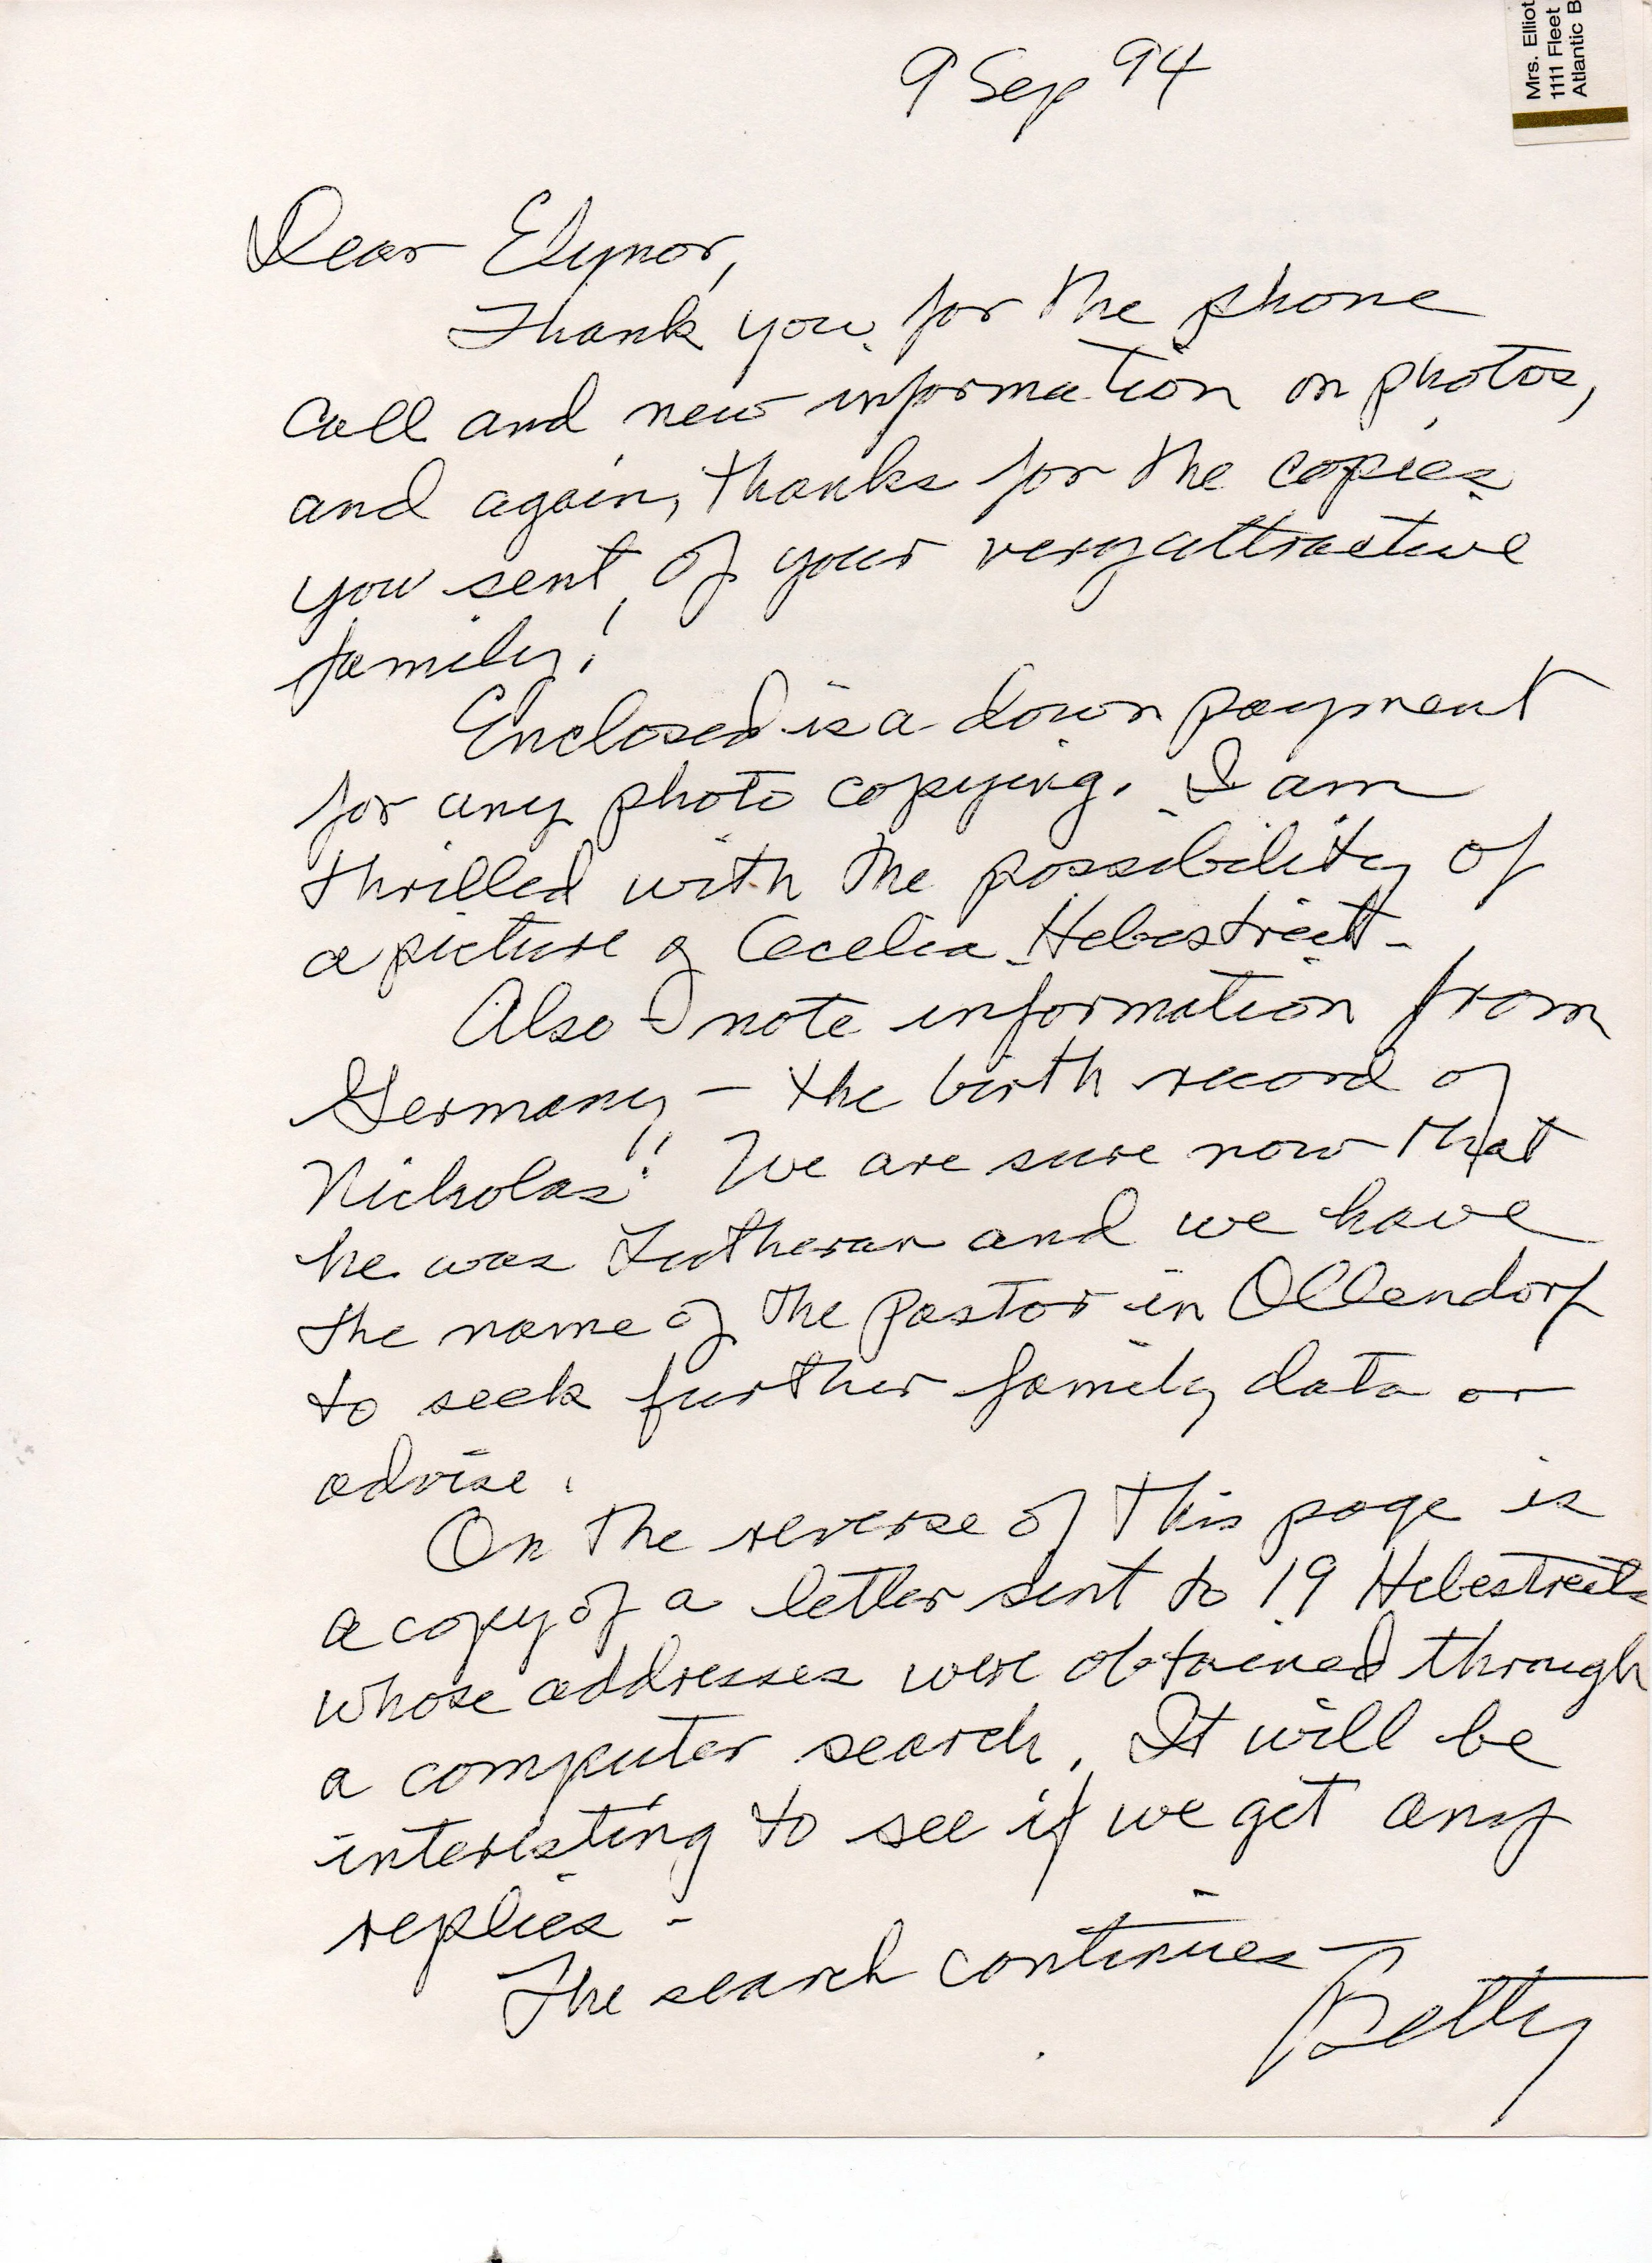 Mrs. Elliot
1111 Fleet
Atlantic B
9 Sep 94
Dear Elynor,
Thank you for the phone
call and new information on photos,
and again, thanks for the copies
you sent of your very attractive
family!
Enclosed is a down payment
for any photo copying. I am
thrilled with the possibility of
a picture of Cecelia Hebestreit-
Also I note information from
Germany - the birth record of
Nicholas!! We are sure now that
he was Lutheran and we have
the name of the Pastor in Ollendorf
to seek further family data or
advise.
On the reverse of this page is
a copy of a letter sent to 19 Hebestreits
whose addresses were obtained through
a computer search. It will be
interesting to see if we get any
replies -
The search continues -
Betty